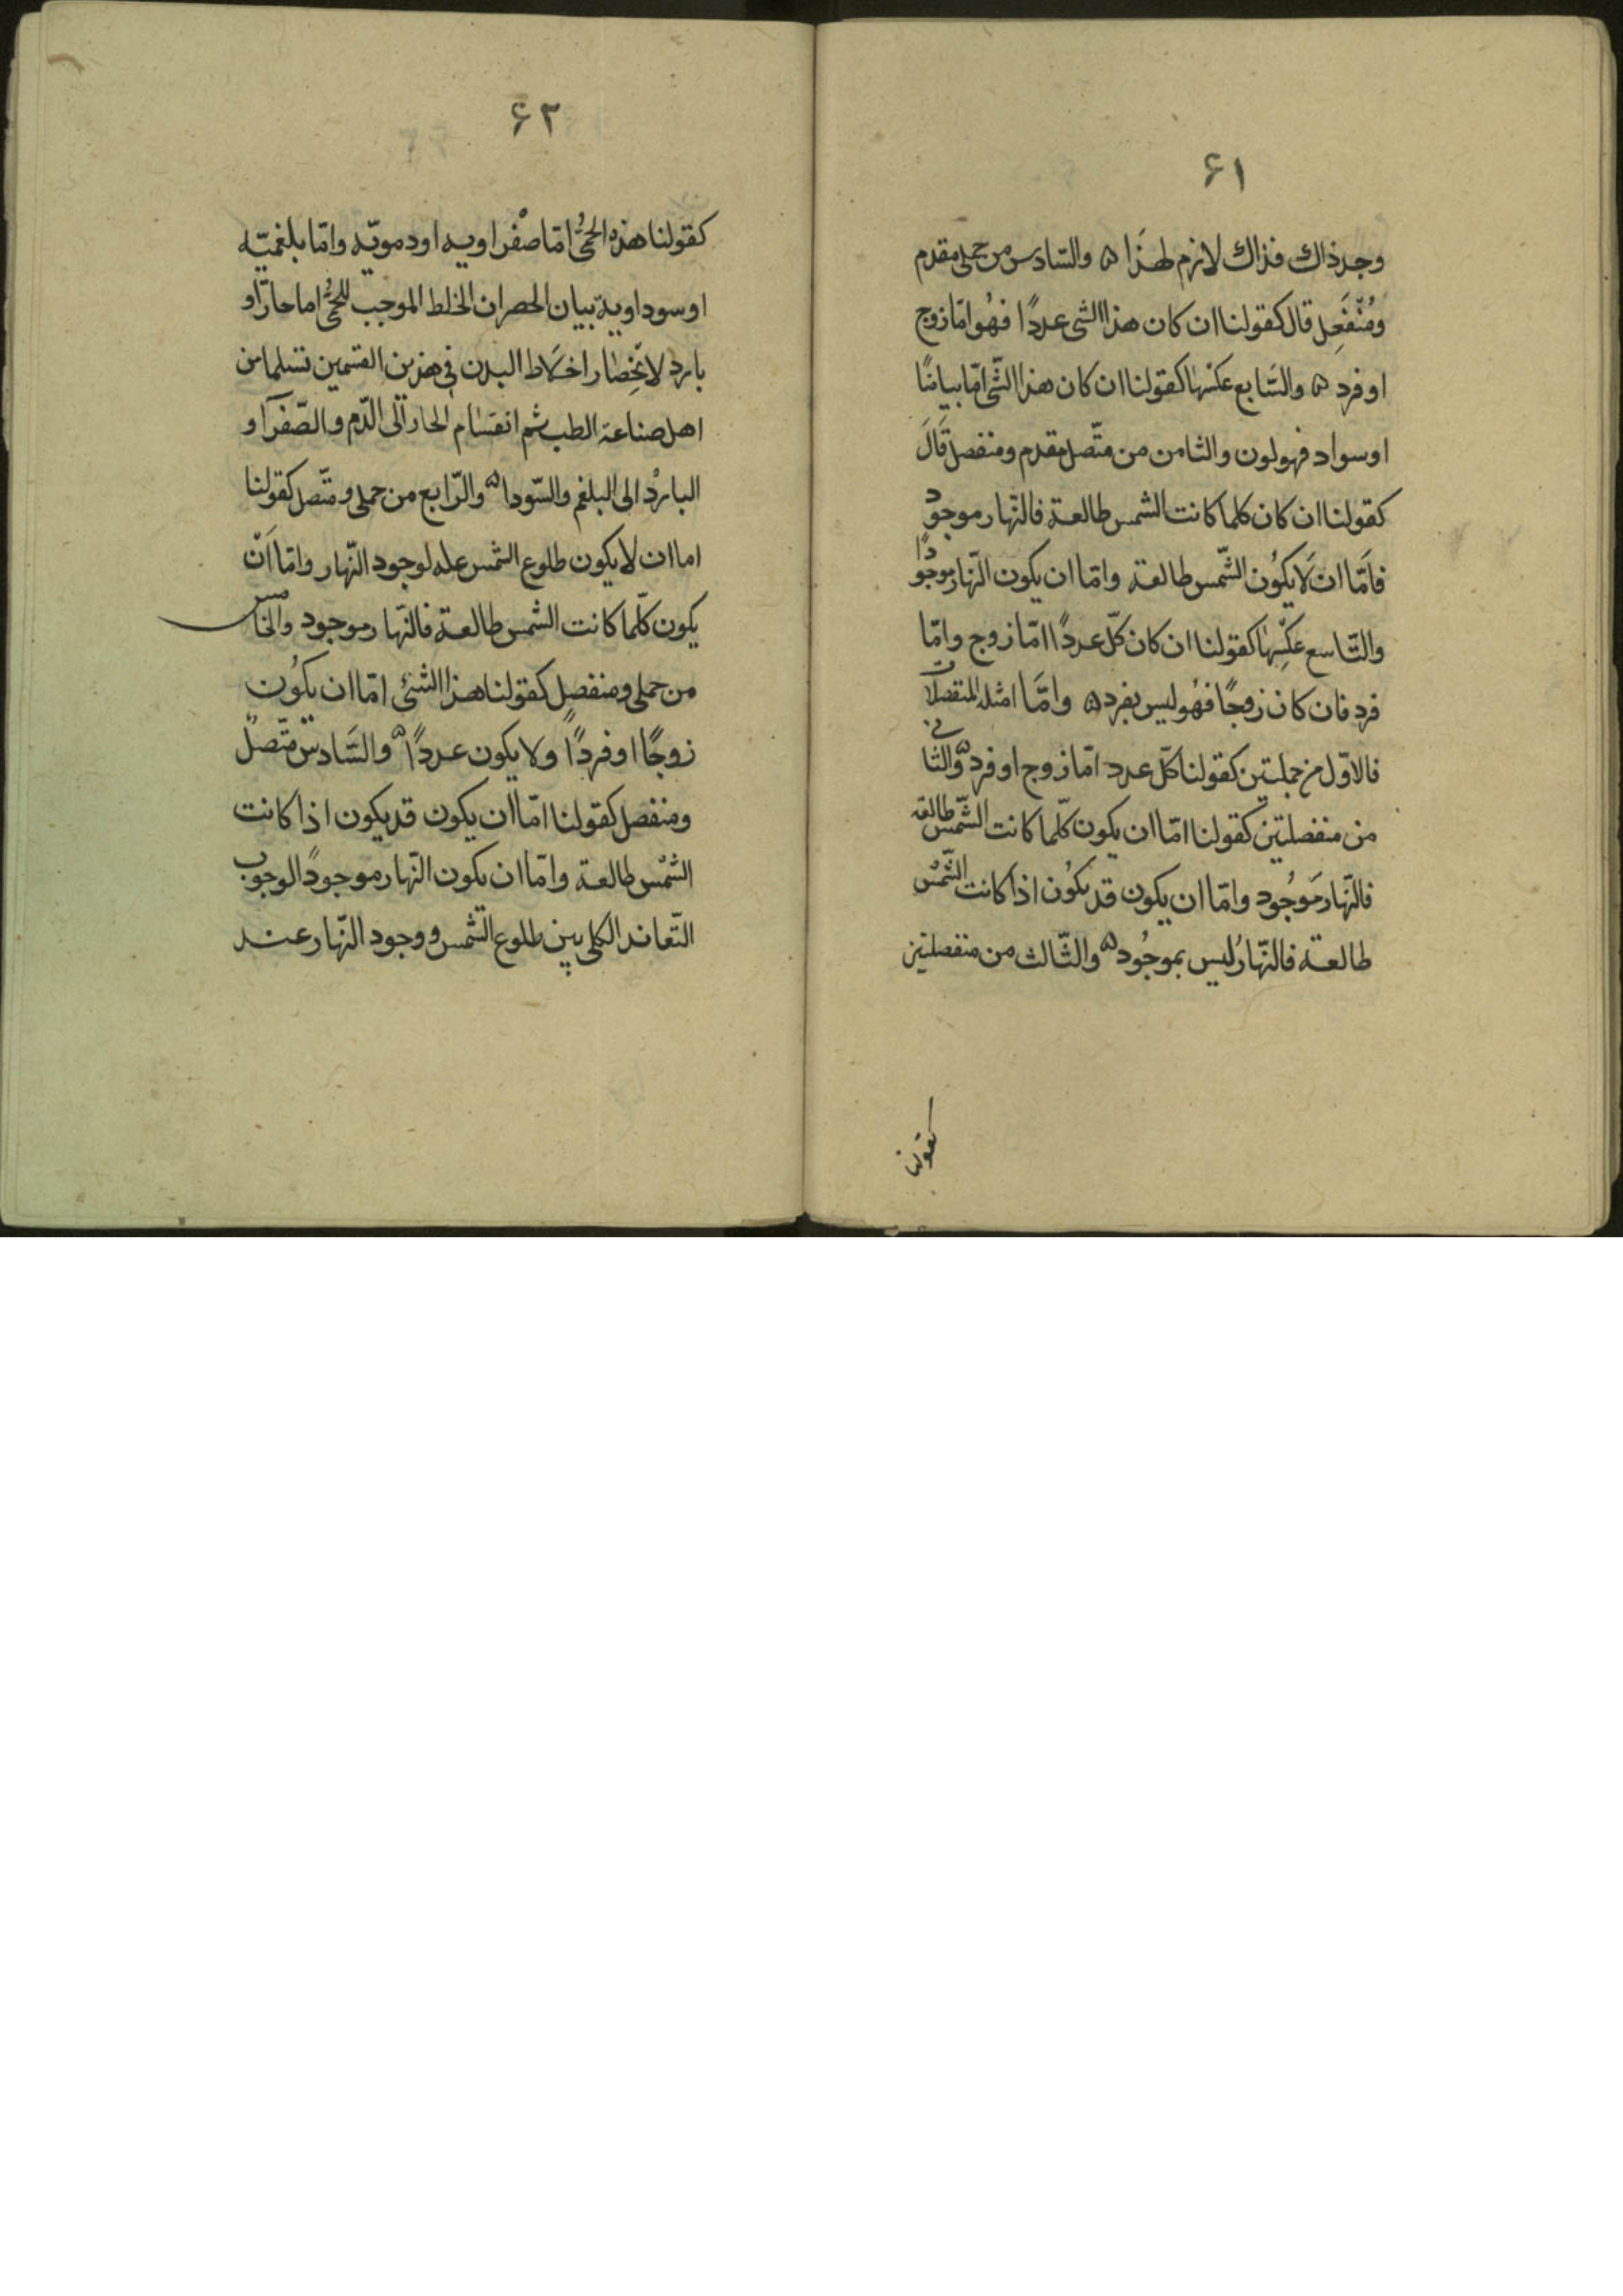 ۶۱
وجد ذاك فذاك لازم لهذا ۵ والسّادس من حملى مقدم
ومُنْفَصِل قال كقولنا ان كان هذا الشى عددًا فهُو امّا زوج
او فرد ۵ والسَّابع عكسُها كقولنا ان كان هذا الشّى امّا بياضًا
او سواد فهو لون والثامن من متّصل مقدم ومنفصل قَالَ
كقولنا ان كان كلما كانت الشمس طالعة فالنّهار موجود
فامَّا ان لَا يكوُن الشّمس طالعة وامّا ان يكون النّهار موجودًا
والتّاسع عكسِهَا كقولنا ان كان كلّ عددًا امّا زوج وامّا
فرد فان كان زوجًا فهُو ليس بفرد ۵ وامَّا امثله المنفصلات
فالاوّل من حمليتين كقولنا كلّ عدد امّا زوج او فرد ۵ والثّانى
من منفصلتين كقولنا امّا ان يكون كلّما كانت الشّمس طالعة
فالنّهار مَوجُود وامّا ان يكون قد يكوُن اذا كانت الشّمسُ
طالعة فالنّهارُ ليس بموجُود ۵ والثّالث من منفصلتين
كقولنا
۶۲
كقولنا هذه الحمىُّ امّا صفراويه او دمويّه وامّا بلغميّه
او سوداوية بيان الحصر ان الخلط الموجب للحمىُّ اما حارّ او
بارد لانحِصَار اخلَاط البدن فى هذين القسمين تسلما من
اهل صناعة الطب ثم انقسَام الحار الى الدّم والصّفرآ و
الباردُ الى البلغم والسّودا ۵ والرّابع من حملى ومتّصل كقولنا
اما ان لا يكون طلوع الشمس عله لوجود النّهار وامّا اَنّ
يكون كلّما كانت الشمس طالعة فالنّهار موجود والخامس
من حملى ومنفصلٍ كقولنا هذا الشئى امّا ان يكوُن
زوجًا او فردًا ولا يكون عددًا ۵ والسَّادس متّصلٌ
ومنفصل كقولنا امّا ان يكون قد يكون اذا كانت
الشمْس طالعة وامّا ان يكون النّهار موجودًا لوجوب
التّعاند الكلى بين طلوع الشّمس ووجود النّهار عند